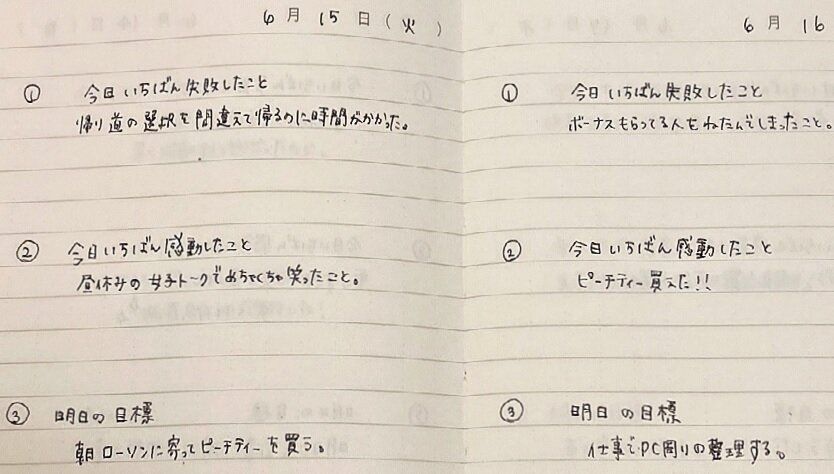 6月15日(火)
① 今日いちばん失敗したこと
帰り道の選択を間違えて帰るのに時間がかかった。
② 今日いちばん感動したこと
昼休みの女子トークでめちゃくちゃ笑ったこと。
③ 明日の目標
朝ローソンに寄ってピーチティーを買う。
6月16
① 今日いちばん失敗したこと
ボーナスもらってる人をねたんでしまったこと。
② 今日いちばん感動したこと
ピーチティー買えた!!
③ 明日の目標
仕事でPC周りの整理する。